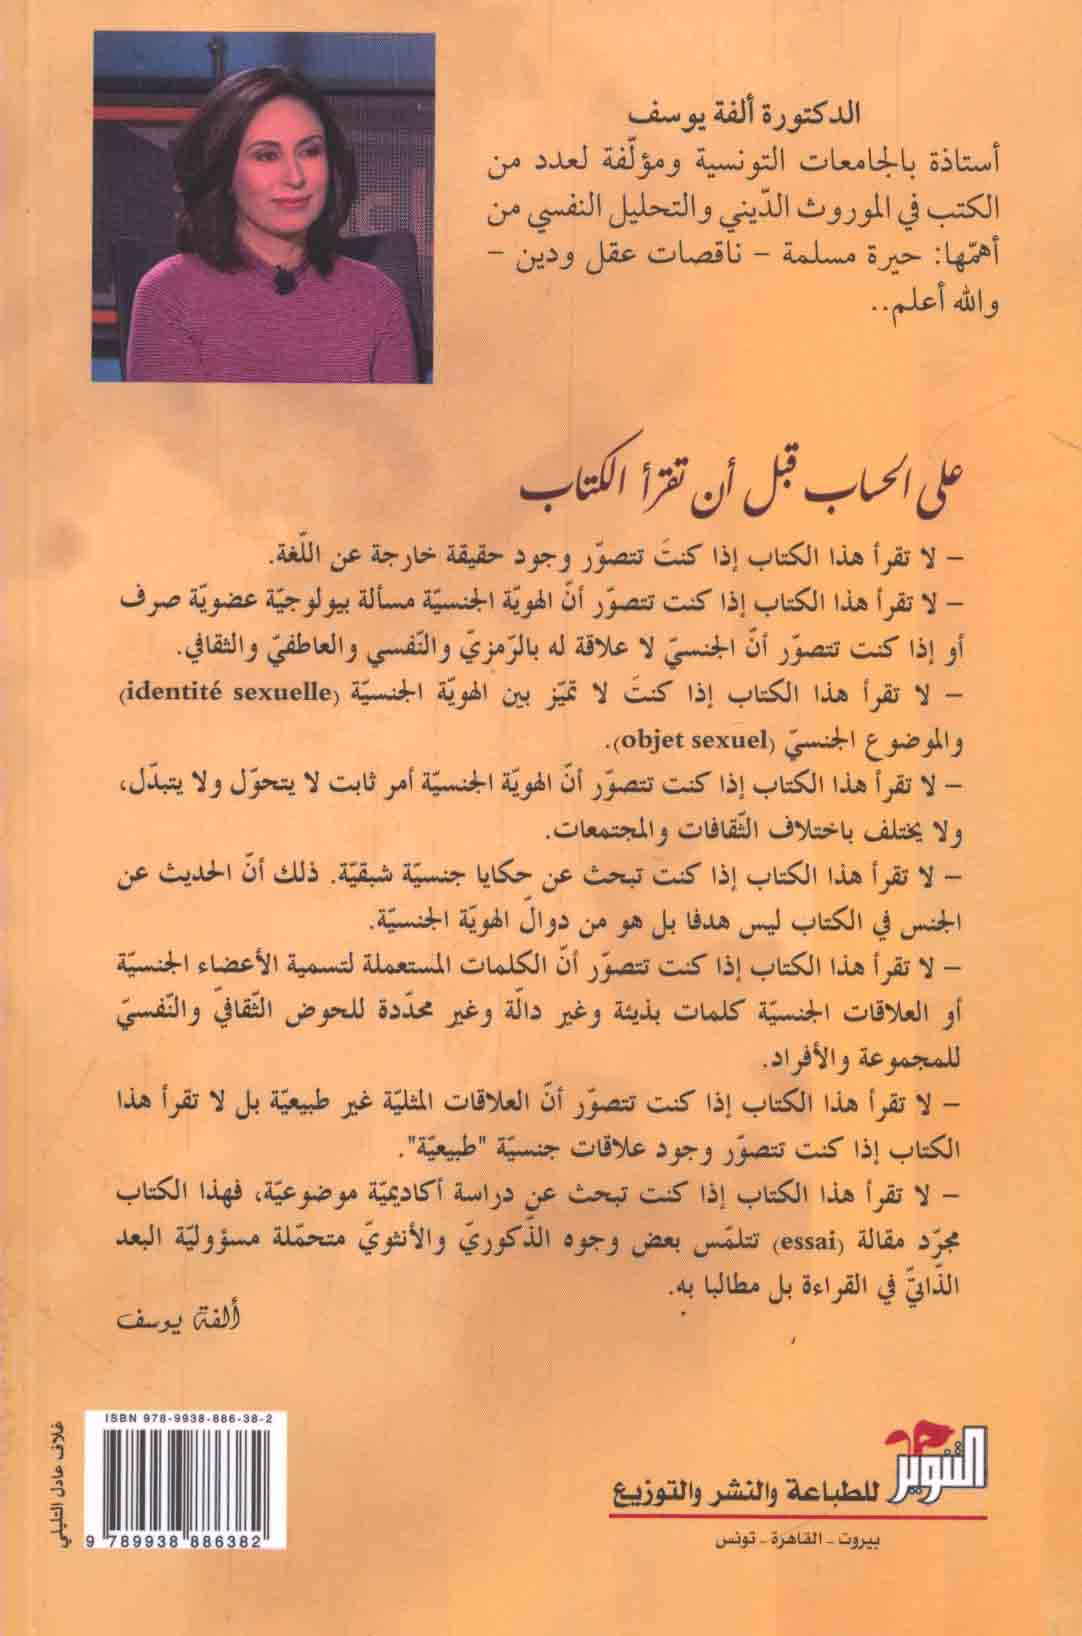 الدكتورة ألفة يوسف
أستاذة بالجامعات التونسية ومؤلّفة لعدد من
الكتب في الموروث الدّيني والتحليل النفسي من
أهمّها: حيرة مسلمة - ناقصات عقل ودين -
والله أعلم..
على الحساب قبل أن تقرأ الكتاب
- لا تقرأ هذا الكتاب إذا كنتَ تتصوّر وجود حقيقة خارجة عن اللّغة.
- لا تقرأ هذا الكتاب إذا كنت تتصوّر أنّ الهويّة الجنسيّة مسألة بيولوجيّة عضويّة صرف
أو إذا كنت تتصوّر أنّ الجنسيّ لا علاقة له بالرّمزيّ والنّفسي والعاطفيّ والثقافي.
- لا تقرأ هذا الكتاب إذا كنتَ لا تميّز بين الهويّة الجنسيّة (identité sexuelle)
والموضوع الجنسيّ (objet sexuel).
- لا تقرأ هذا الكتاب إذا كنت تتصوّر أنّ الهويّة الجنسيّة أمر ثابت لا يتحوّل ولا يتبدّل،
ولا يختلف باختلاف الثّقافات والمجتمعات.
- لا تقرأ هذا الكتاب إذا كنت تبحث عن حكايا جنسيّة شبقيّة. ذلك أنّ الحديث عن
الجنس في الكتاب ليس هدفا بل هو من دوالّ الهويّة الجنسيّة.
- لا تقرأ هذا الكتاب إذا كنت تتصوّر أنّ الكلمات المستعملة لتسمية الأعضاء الجنسيّة
أو العلاقات الجنسيّة كلمات بذيئة وغير دالّة وغير محدّدة للحوض الثّقافيّ والنّفسيّ
للمجموعة والأفراد.
- لا تقرأ هذا الكتاب إذا كنت تتصوّر أنّ العلاقات المثليّة غير طبيعيّة بل لا تقرأ هذا
الكتاب إذا كنت تتصوّر وجود علاقات جنسيّة "طبيعيّة".
- لا تقرأ هذا الكتاب إذا كنت تبحث عن دراسة أكاديميّة موضوعيّة، فهذا الكتاب
مجرّد مقالة (essai) تتلمّس بعض وجوه الذّكوريّ والأنثويّ متحمّلة مسؤوليّة البعد
الذّاتيّ في القراءة بل مطالبا به.
ألفة يوسف
غلاف عادل التليلي
ISBN 978-9938-886-38-2
9 789938 886382
التنوير للطباعة والنشر والتوزيع
بيروت - القاهرة - تونس